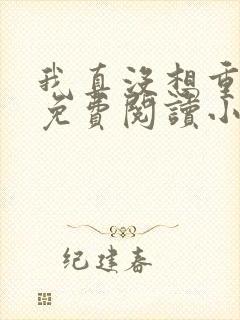 我真没想重
免費閱讀小
纪建春